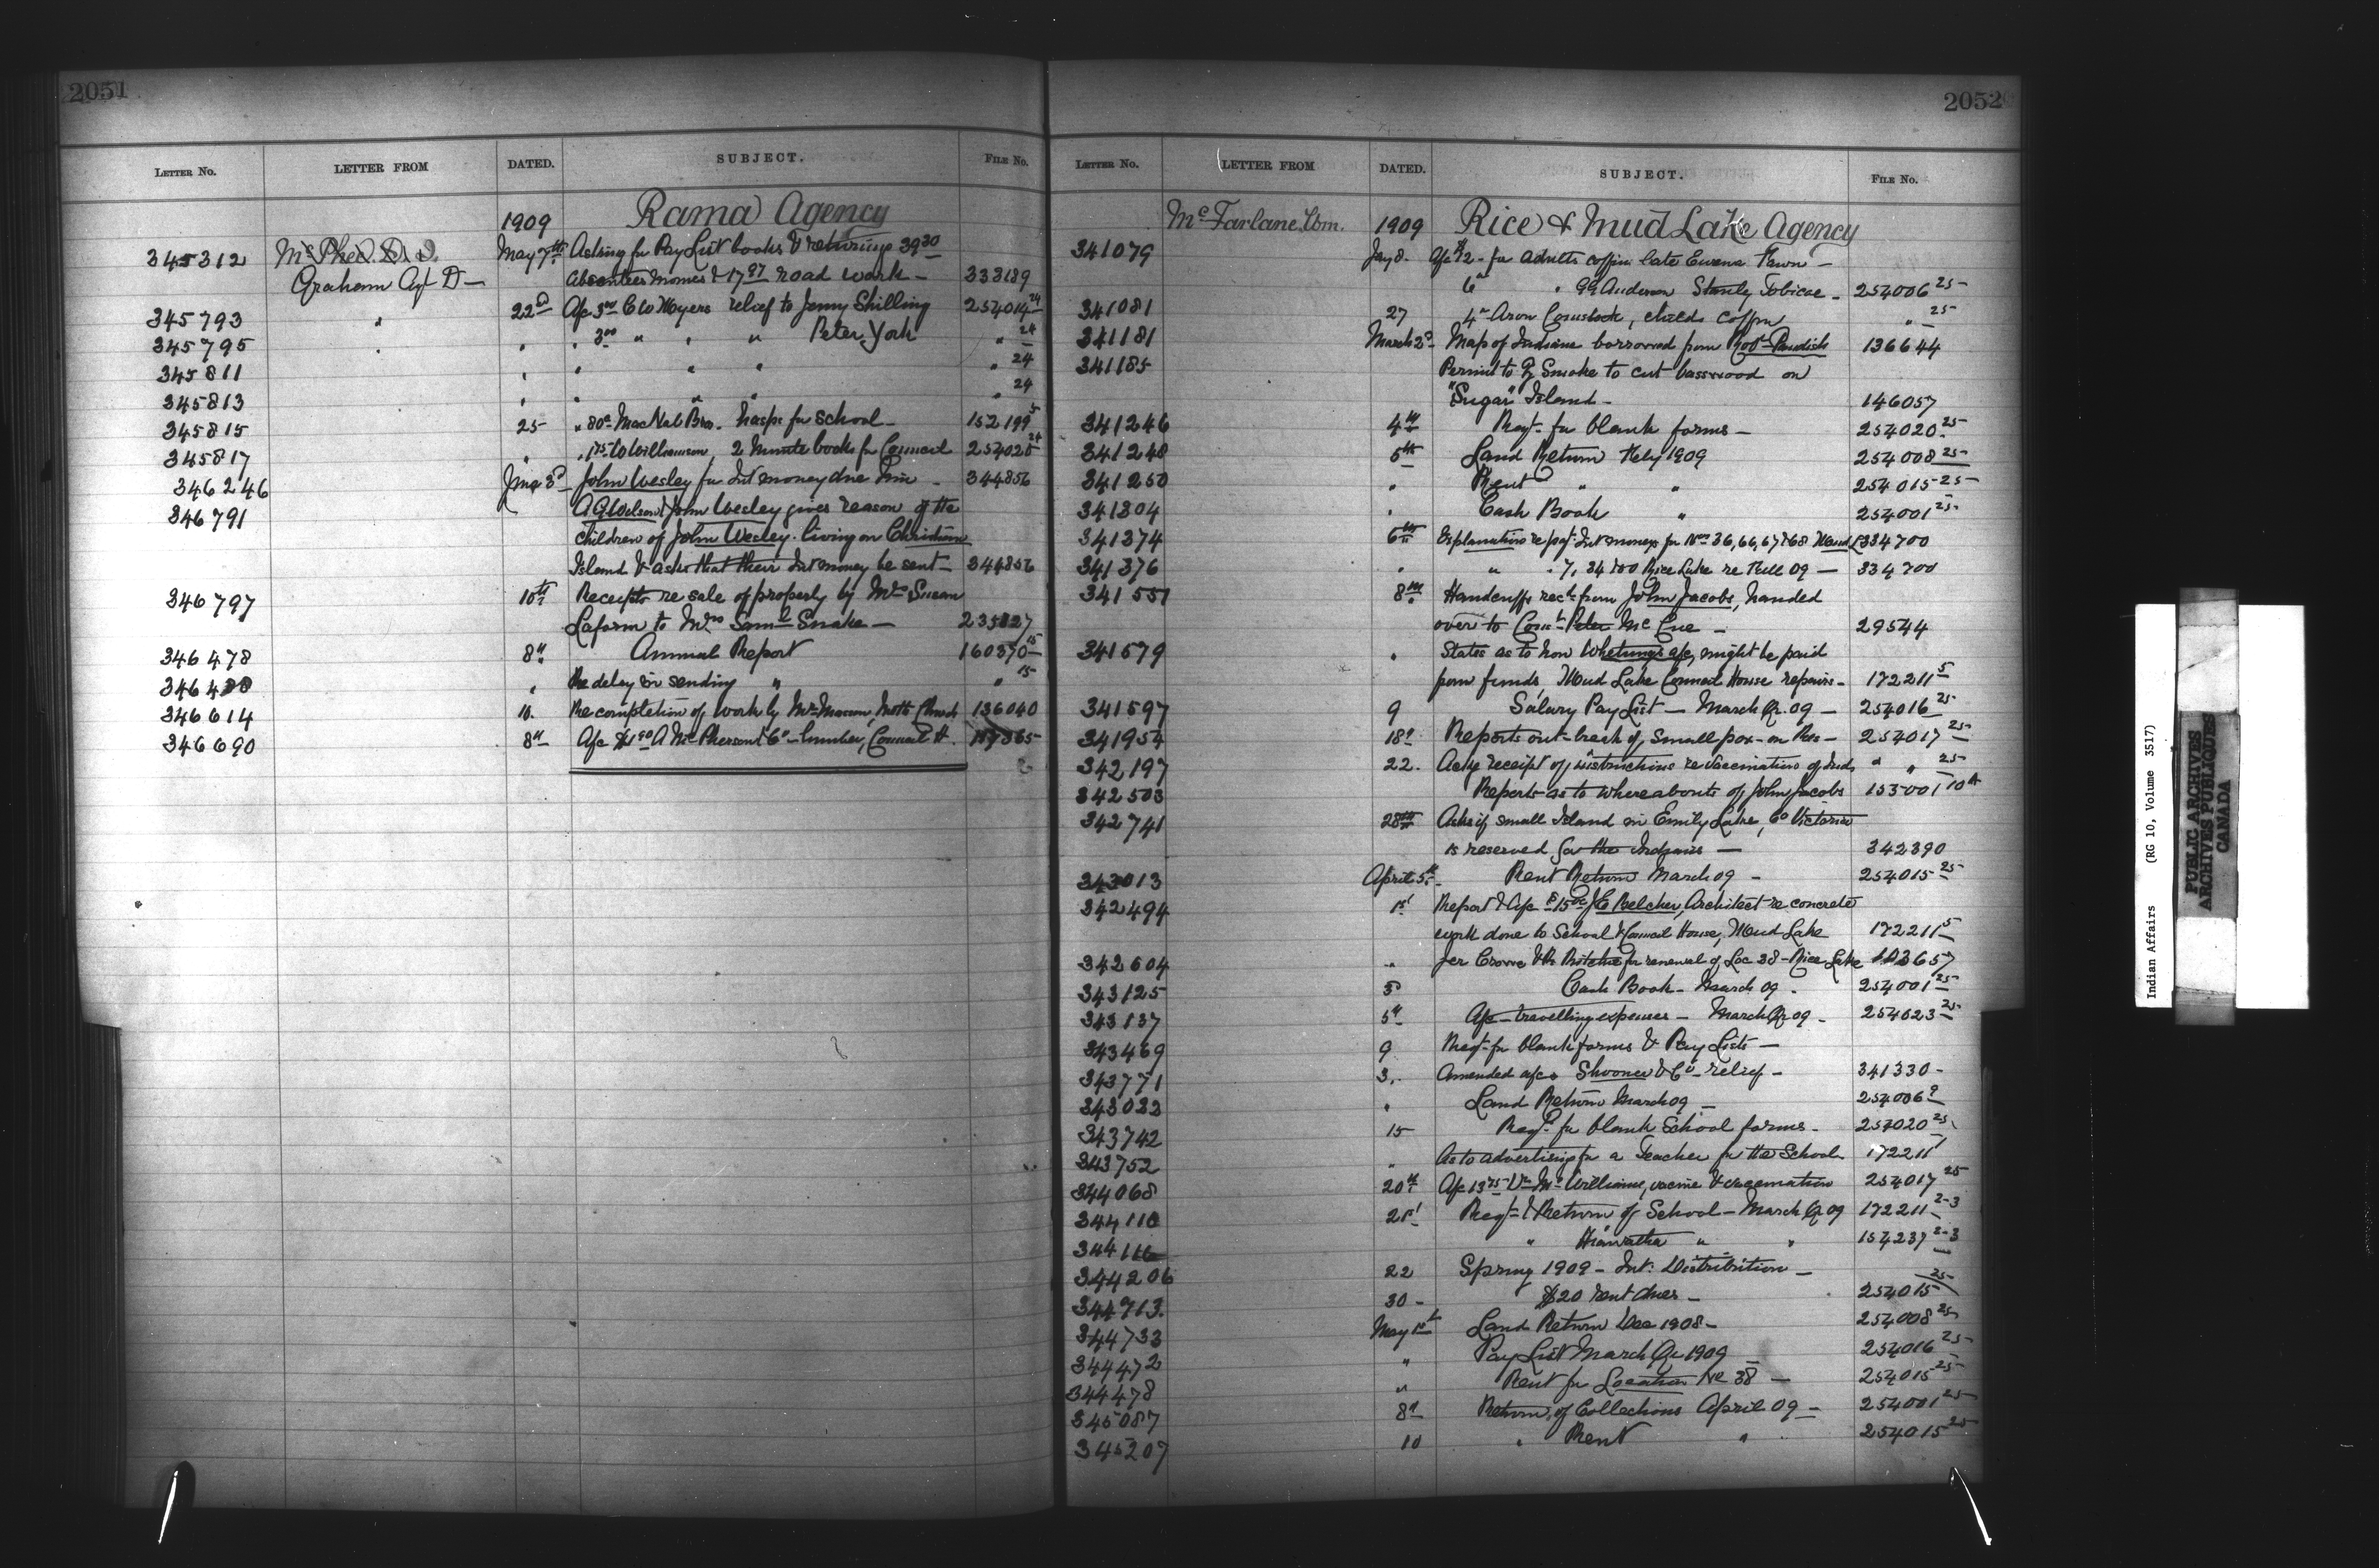 2051
LETTER NO. LETTER FROM DATED. SUBJECT. FILE NO.
1909 Rama Agency
345312 McPhee D. J. May 7th Asking for Pay List books & returning 39.30
Graham Agt D — absentees monies & 17.97 road work — 333189
345793 " 22d A/c 3.00 C W Moyers relief to Jenny Shilling 254014 24
345795 " " " 3.00 " " " Peter York " 24
345811 " " " " " 24
345813 " " " " " 24
345815 25 " 80c MacNab Bros. hasps for School 152199 5
345817 " " 1.75 W Williamson, 2 Minute books for Council 254028 24
346246 June 3d John Wesley for Int money due him — 344856
346791 A G Wilson & John Wesley gives reason of the
children of John Wesley living on Christian
Island & asks that their Int money be sent — 344856
346797 10th Receipts re sale of property by Mrs Susan
Laform to Mrs Saml Snake — 235827
346478 8th Annual Report 160370 15
346480 " Re delay in sending " " 15
346614 10. Re completion of work by Mr Mason, Meth Church 136040
346690 8th A/c $1.90 A McPherson & Co — lumber, Council H. 157865
2052
LETTER NO. LETTER FROM DATED. SUBJECT. FILE NO.
McFarlane, Wm. 1909 Rice & Mud Lake Agency
341079 Jay 8. A/c $12 - for adults coffin late Eurena
6 " " Anderson Stanly Tobicoe - 254006 25
341081 27 4.00 Aron Comstock, childs coffin " 25
341181 March 2d Map of Indians borrowed from Robt Paudish 136644
341185 Permit to G Smoke to cut basswood on
"Sugar" Island - 146057
341246 4th Reqt. for blank forms — 254020 25
341248 5th Land Return Feby 1909 254008 25
341250 " Rent " " 254015 25
341304 " Cash Book " 254001 25
341374 6th Explanations re Int moneys for Nos 36, 66, 67 & 68 Mud L 334700
341376 " " " 7, 34 Rice Lake re Fall 09 — 334700
341551 8th Handcuffs recd from John Jacobs, handed
over to Const Peter McCue — 29544
341579 " States as to how Whetung's a/c, might be paid
from funds, Mud Lake Council House repairs - 172211 5
341597 9 Salary Pay List — March Qr. 09 — 254016 25
341954 18th Reports out-break of Small pox on Res — 254017 25
342197 22. Ackg receipt of instructions re vaccination of Inds " " 25
342503 Reports as to whereabouts of John Jacobs 153001 10A
342741 28th Asks if small Island in Emily Lake, Co Victoria
is reserved for the Indians — 342390
343013 April 5th Rent Return March 09 - 254015 25
342494 1st Report & A/c $15.00 J E Belcher, Architect re concrete
work done to School & Council House, Mud Lake 172211 5
342604 " Jer Crowe & for renewal of Loc 38 - Rice Lake 103657
343125 5 Cash Book - March 09 - 254001 25
343137 5th A/c - travelling expenses - March Qr 09 - 254023 25
343469 9 Reqt for blank forms & Pay Lists —
343771 3. Amended a/cs & Co - relief - 341330 -
343022 " Land Return March 09 — 254006 9
343742 15 Reqt. for blank School forms - 254020 25
343752 " As to advertising for a Teacher for the School 172211 1
344068 20th A/c 13.75 Dr McWilliams, vaccine & vaccination 254017 25
344110 21st Reqt. & Return of School - March Qr 09 172211 2-3
344116 " Hiawatha " " 154237 2-3
344206 22 Spring 1909 - Int: Distribution —
344713. 30 - $20 rent dues — 254015 25
344733 May 1st Land Return Dec 1908 - 254008 25
344472 " Pay List March Qr 1909 — 254016 25
344478 " Rent for Location No 38 — 254015 25
345087 8th Return of Collections April 09 — 254001 25
345207 10 " Rent " 254015 25
Indian Affairs (RG 10, Volume 3517)
PUBLIC ARCHIVES
ARCHIVES PUBLIQUES
CANADA